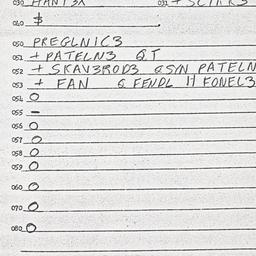 030 HANT3X 031 + SCHK3
040 $
050 PREGLNIC3
051 + PATELN3 QT
052 + SKAV3ROD3 QSYN PATELN
053 + FAN Q FENDL H FONEL3
054 O
055 –
056 O
057 O
058 O
059 O
060 O
070 O
080 O